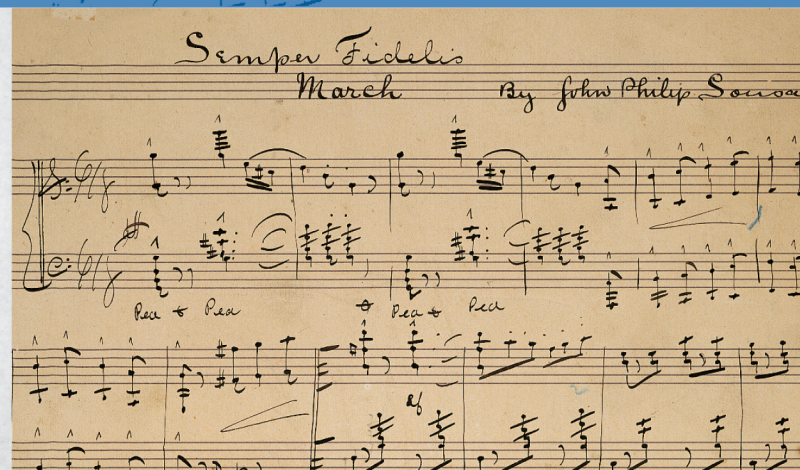 Semper Fidelis
March By John Philip Sousa
Ped Ped Ped Ped